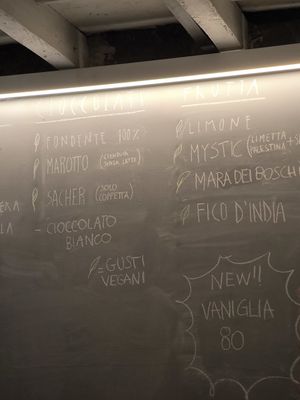 CIOCCOLATI
FONDENTE 100%
MAROTTO (GIANDUIA SENZA LATTE)
SACHER (SOLO COPPETTA)
- CIOCCOLATO
BIANCO
= GUSTI
VEGANI
FRUTTA
LIMONE
MYSTIC (LIMETTA PALESTINA +
MARA DEI BOSCHI
FICO D'INDIA
NEW!!
VANIGLIA
80